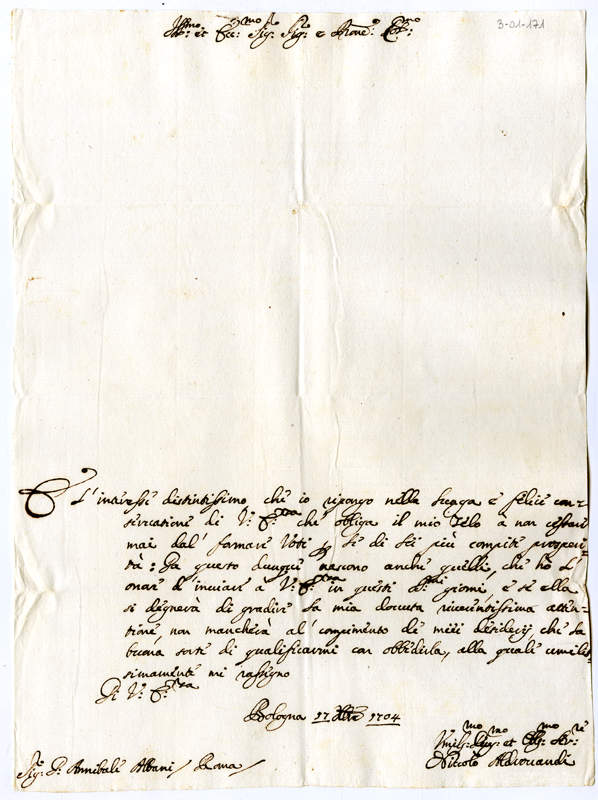 Ill.mo et Ecc.mo Sig.r Sig.r e Prone Col.mo
3-01-171
È l'interesse distintissimo che io ripongo nella lunga e felice con=
servatione di V: E:za che obliga il mio Zelo a non cessare
mai dal' formare Voti p le di Lei più compite prosperi=
tà: Da questo dunque nascono anche quelli, che hò l'
onore d'inviare à V: E:za in questi S:ti giorni, e se ella
si degnerà di gradire la mia dovuta riverentissima atten=
tione, non mancherà al' compimento de miei desiderij, che la
buona sorte di qualificarmi con obbidirla, alla quale umilis=
simamente mi rassegno
Di V: E:za
Bologna 17 Xbre 1704
Umil:mo Dev:mo et Obl:mo Ser:re
Niccolò Aldrovandi
Sig: D. Annibale Albani / Roma /